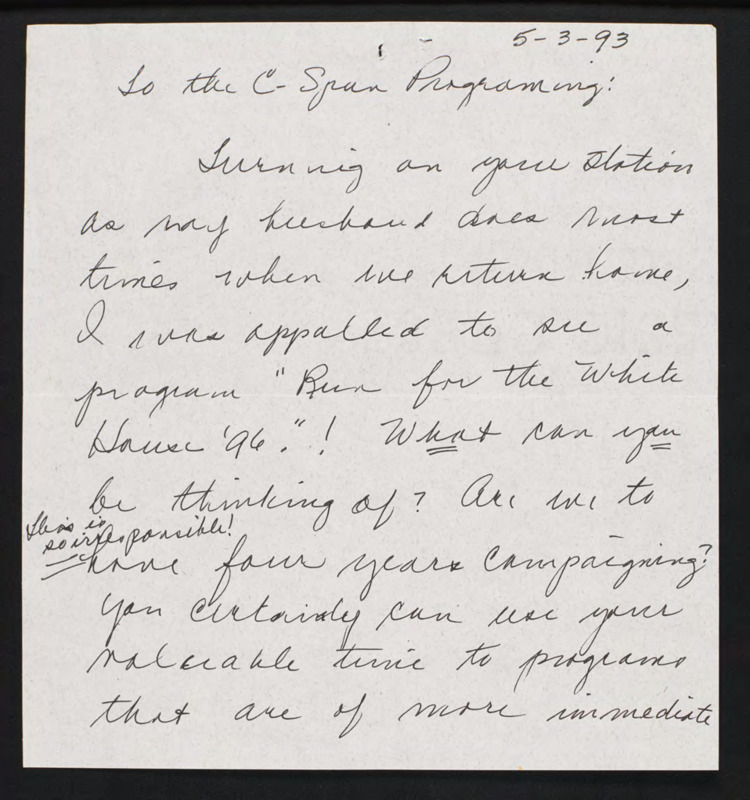 5-3-93
To the C-Span Programing:
Turning on your station
as my husband does most
times when we return home,
I was appalled to see a
program "Run for the White
House '96."! What can you
be thinking of? Are we to
This is
so irresponsible!
have four years campaigning?
You certainly can use your
valuable time to programs
that are of more immediate